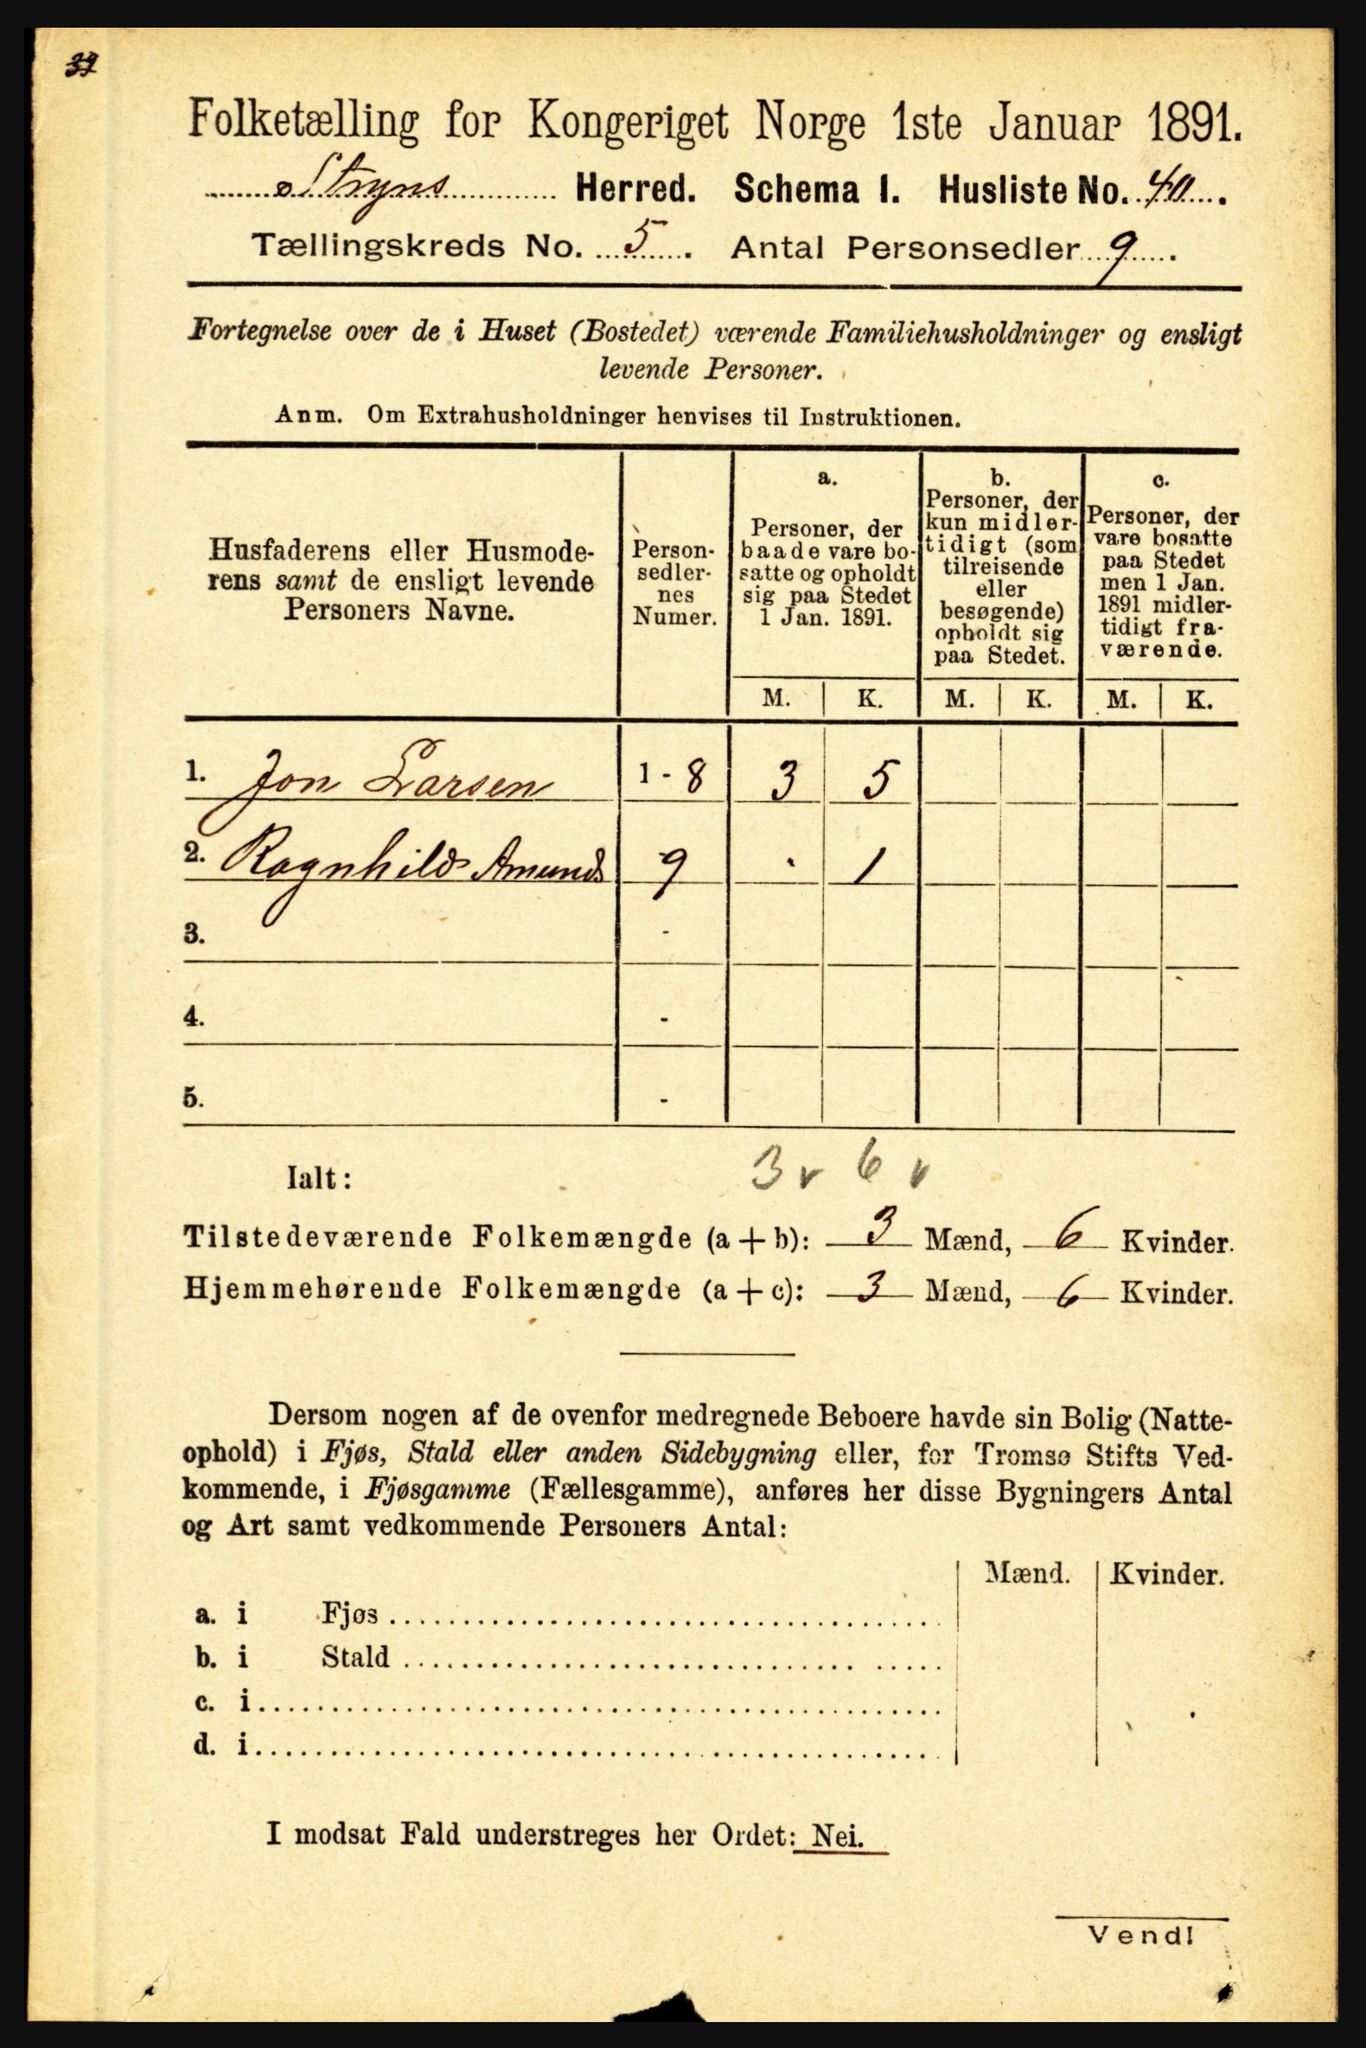 Folketælling for Kongeriget Norge 1ste Januar 1891.
Stryns Herred. Schema I. Husliste No. 40.
Tællingskreds No. 5. Antal Personsedler 9.
Fortegnelse over de i Huset (Bostedet) værende Familiehusholdninger og ensligt
levende Personer.
Anm. Om Extrahusholdninger henvises til Instruktionen.
Husfaderens eller Husmode-
rens samt de ensligt levende
Personers Navne.
Person-
sedler-
nes
Numer.
a.
Personer, der
baade vare bo-
satte og opholdt
sig paa Stedet
1 Jan. 1891.
b.
Personer, der
kun midler-
tidigt (som
tilreisende
eller
besøgende)
opholdt sig
paa Stedet.
c.
Personer, der
vare bosatte
paa Stedet
men 1 Jan.
1891 midler-
tidigt fra-
værende.
M. K. M. K. M. K.
1. Jon Larsen 1 - 8 3 5
2. Ragnhild Amunds 9 . 1
3. -
4. -
5. -
Ialt: 3 v 6 v
Tilstedeværende Folkemængde (a + b): 3 Mænd, 6 Kvinder.
Hjemmehørende Folkemængde (a + c): 3 Mænd, 6 Kvinder.
Dersom nogen af de ovenfor medregnede Beboere havde sin Bolig (Natte-
ophold) i Fjøs, Stald eller anden Sidebygning eller, for Tromsø Stifts Ved-
kommende, i Fjøsgamme (Fællesgamme), anføres her disse Bygningers Antal
og Art samt vedkommende Personers Antal:
Mænd. Kvinder.
a. i Fjøs
b. i Stald
c. i
d. i
I modsat Fald understreges her Ordet: Nei.
Vend!